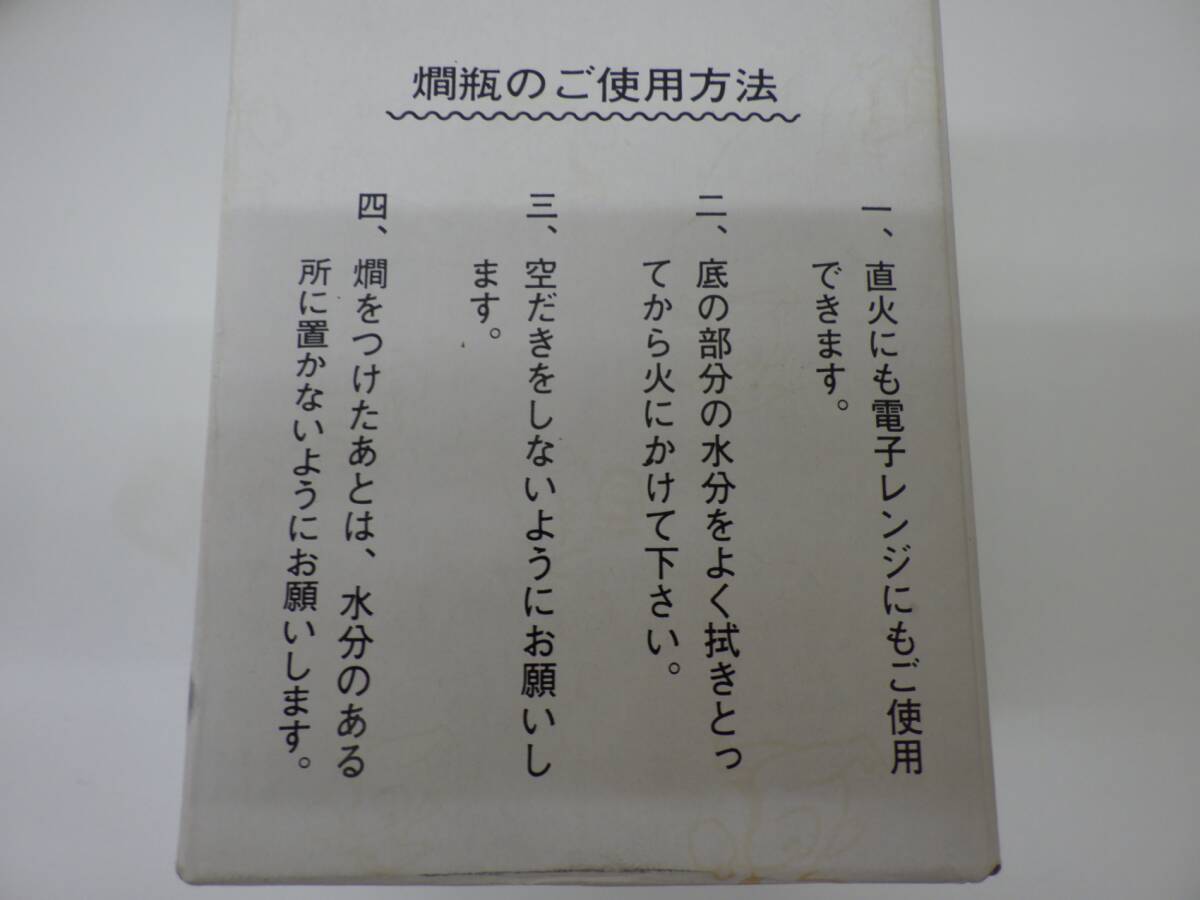 燗瓶のご使用方法
一、直火にも電子レンジにもご使用
できます。
二、底の部分の水分をよく拭きとっ
てから火にかけて下さい。
三、空だきをしないようにお願いし
ます。
四、燗をつけたあとは、水分のある
所に置かないようにお願いします。